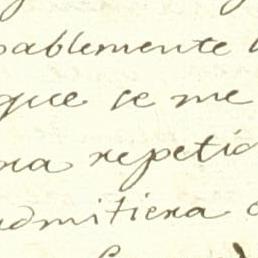 pablemente
que se me
ra repetid
admitiera